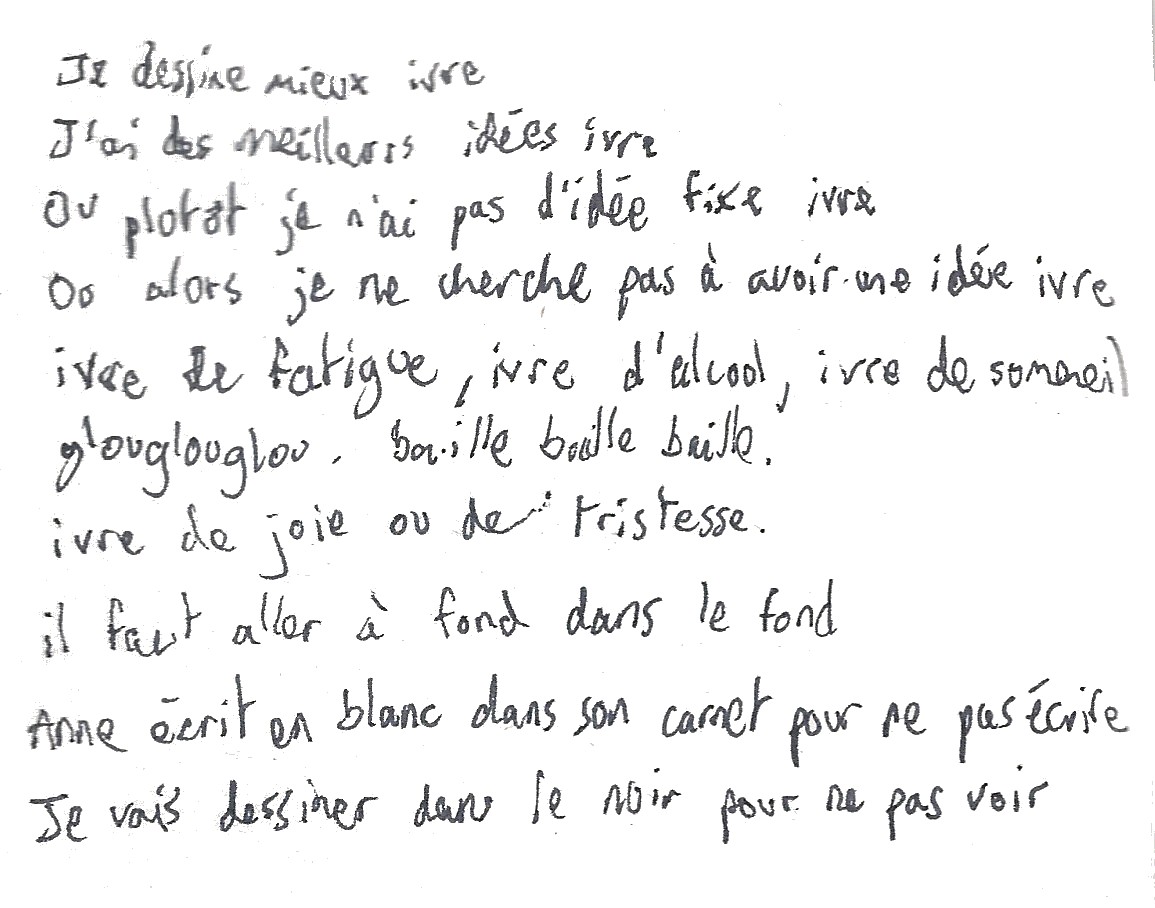 Je dessine mieux ivre
J'ai des meilleurs idées ivre
Ou plutôt je n'ai pas d'idée fixe ivre
Ou alors je ne cherche pas à avoir une idée ivre
ivre de fatigue, ivre d'alcool, ivre de sommeil
glouglouglou. baille baille baille.
ivre de joie ou de tristesse.
il faut aller à fond dans le fond
Anne écrit en blanc dans son carnet pour ne pas écrire
Je vais dessiner dans le noir pour ne pas voir